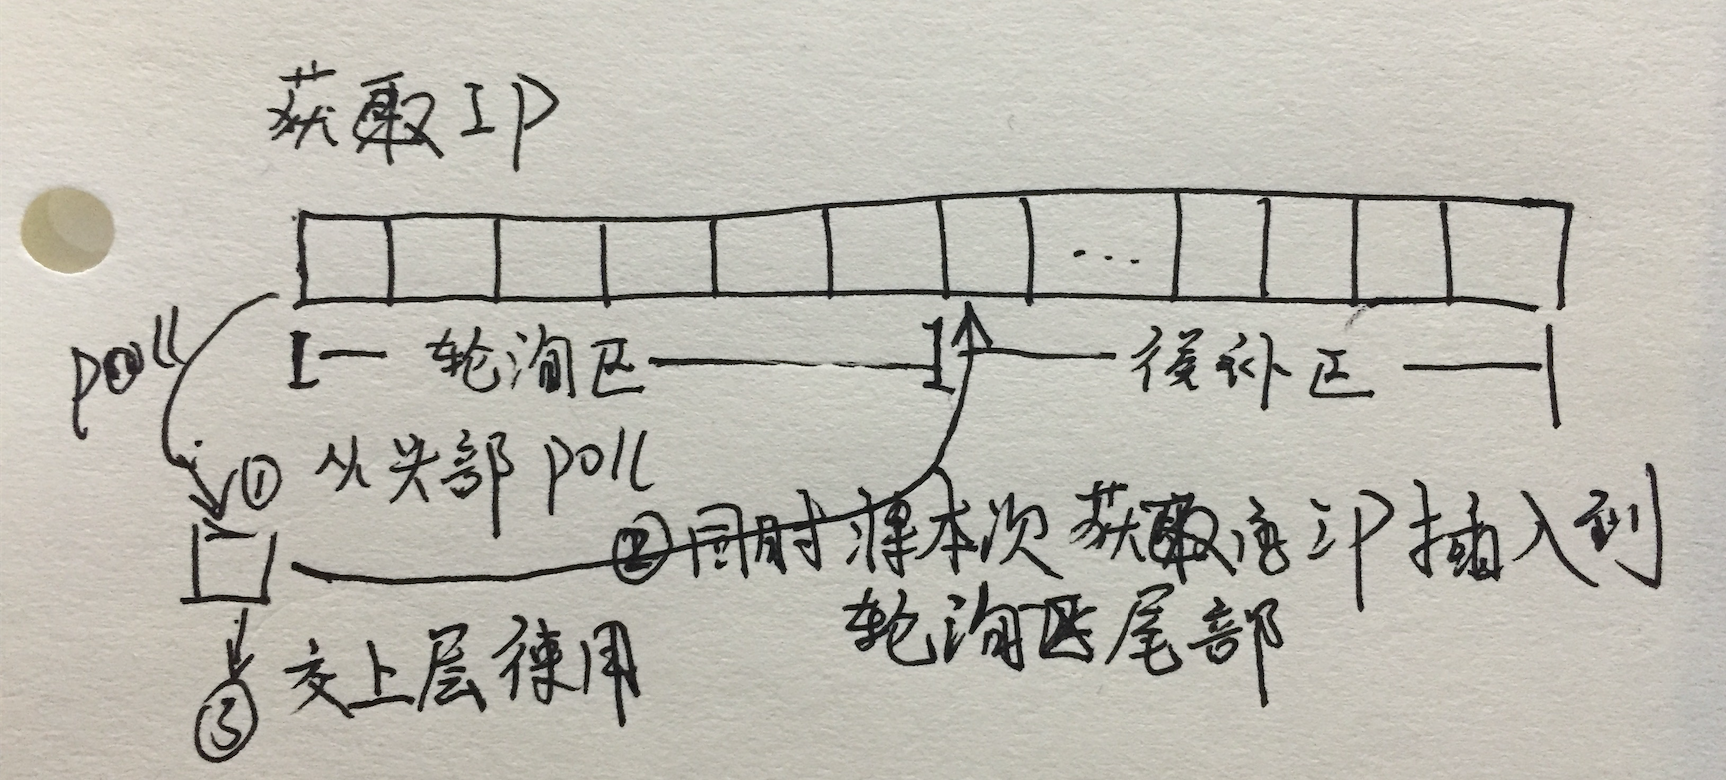 获取IP
...
poll
轮询区
候补区
① 从头部 poll
② 同时将本次获取的IP插入到
轮询区尾部
③ 交上层使用